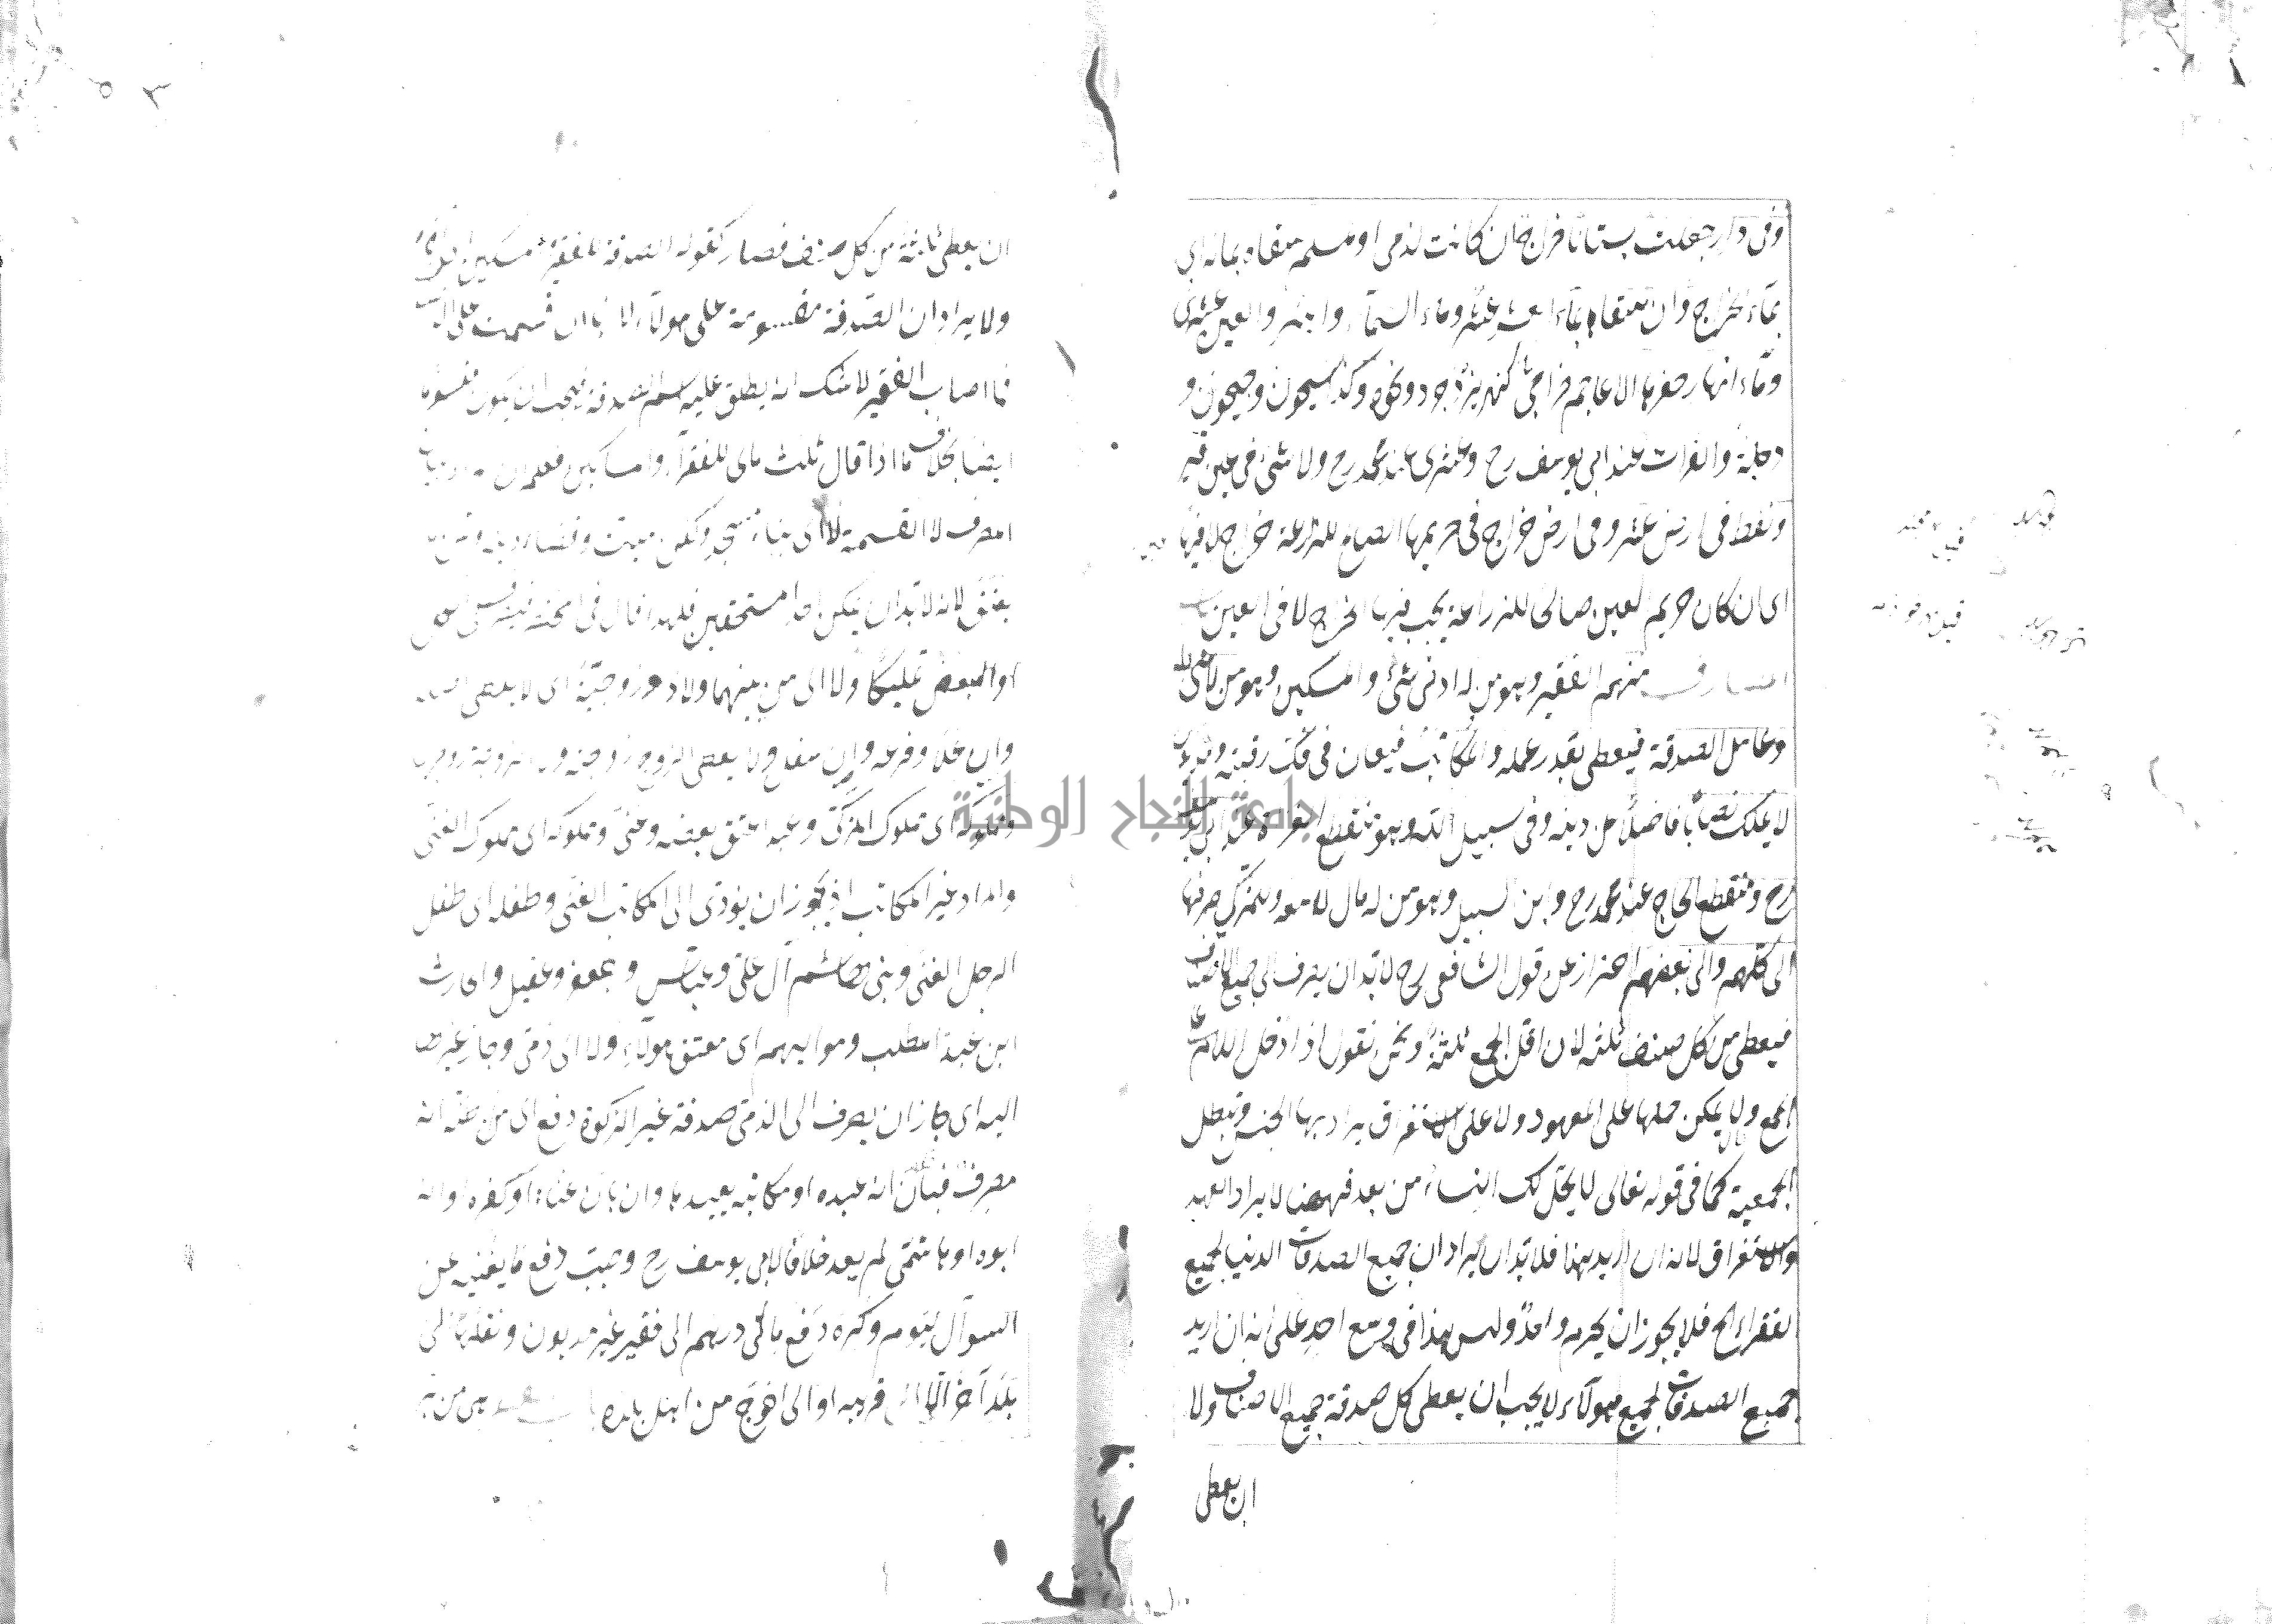 وفى دار جعلت بستانا خراج ان كانت لذمى او مسلم سقاه بمائه اى
بماء الخراج وان سقاه بماء العشر عشر وماء السماء والبئر والعين عشرى
وماء انهار حفرها الاعاجم خراجى كنهر يزدجرد ونحوه وكذا سيحون وجيحون و
دجلة والفرات عند ابى يوسف رح وعشرى عند محمد رح ولا شئ فى عين قير
ونفط فى ارض عشر وفى ارض خراج فى حريمها الصالح للزراعة خراج لا فيها
اى ان كان حريم العين صالحا للزراعة يجب فيها الخراج لا فى العين
المصارف منهم الفقير وهو من له ادنى شئ والمسكين وهو من لا شئ له
وعامل الصدقة فيعطى بقدر عمله والمكاتب فيعان فى فك رقبته ومديون
لا يملك نصابا فاضلا عن دينه وفى سبيل الله وهو منقطع الغزاة عند ابى يوسف
رح ومنقطع الحاج عند محمد رح وابن السبيل وهو من له مال لا معه وللمزكى صرفها
الى كلهم والى بعضهم احتراز عن قول الشافعى رح لا بد ان يصرف الى جميع الاصناف
فيعطى من كل صنف ثلثة لان اقل الجمع ثلثة ونحن نقول اذا دخل اللام على
الجمع ولا يمكن حملها على المعهود ولا على الاستغراق يراد بها الجنس وتبطل
الجمعية كما فى قوله تعالى لا يحل لك النساء من بعد فههنا لا يراد العهد
والاستغراق لانه ان اريد هذا فلا بد ان يراد ان جميع الصدقات الدنيا لجميع
الفقراء الخ فلا يجوز ان يحرم واحد وليس هذا فى وسع احد على انه ان اريد
جميع الصدقات لجميع هولآء لا يجب ان يعطى كل صدقة جميع الاصناف ولا
ان يعطى
ان يعطى ثلثة من كل صنف فصار كقوله الصدقة للفقير والمسكين
ولا يراد ان الصدقة مقسومة على هولآء لا نها ان قسمت على
فما اصاب الفقير لا شك انه يطلق عليه اسم الصدقة فيجب ان يكون مقسوما
ايضا بخلاف ما اذا قال ثلث مالى للفقرآء والمساكين فعلم ان المراد بيان
المصرف لا القسمة لا الى بناء مسجد وكفن ميت وقضاء دينه وثمن ما
يعتق لانه لا بد ان يملك احد المستحقين فلهذا قال فى المختصر فيصرف الى الكل
او البعض تمليكا ولا الى من بينهما ولاد او زوجية اى لا يعطى اصله
وان علا وفرعه وان سفل ولا يعطى الزوج زوجته ولا الزوجة زوجها
ومملوكه اى مملوك المزكى وعبد اعتق بعضه وغنى ومملوكه اى مملوك الغنى
والمراد غير المكاتب اذ يجوز ان يؤدى الى المكاتب الغنى وطفله اى طفل
الرجل الغنى وبنى هاشم آل على وعباس وجعفر وعقيل والحارث
ابن عبد المطلب ومواليهم اى معتق هولآء ولا الى ذمى وجاز غيرها
اليه اى جاز ان يصرف الى الذمى صدقة غير الزكوة دفع الى من ظنه انه
مصرف فبان انه عبده او مكاتبه يعيدها وان بان غناه او كفره او انه
ابوه او هاشمى لم يعد خلافا لابى يوسف رح وحبب دفع ما يغنيه عن
السوآل ليومه وكره دفع مائتى درهم الى فقير غير مديون ونقلها الى
بلد آخر الا الى قريبه او الى احوج من اهل بلده هى من بر
جامعة النجاح الوطنية